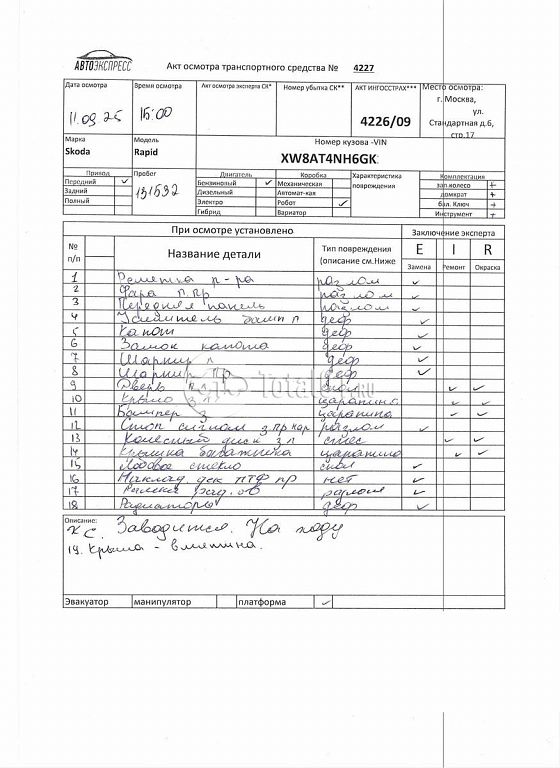 АВТОЭКСПРЕСС
Акт осмотра транспортного средства № 4227
Дата осмотра Время осмотра Акт осмотра эксперта СК* Номер убытка СК** АКТ ИНГОССТРАХ*** Место осмотра:
11.09.25 15:00 4226/09 г. Москва, ул. Стандартная д.6, стр.17
Марка Модель Номер кузова -VIN
Skoda Rapid XW8AT4NH6GK
Привод Пробег Двигатель Коробка Характеристика повреждения Комплектация
Передний ✓ 131532 Бензиновый ✓ Механическая зап.колесо +
Задний Дизельный Автомат-кая домкрат +
Полный Электро Робот ✓ бал. Ключ +
Гибрид Вариатор Инструмент +
При осмотре установлено Заключение эксперта
№ п/п Название детали Тип повреждения (описание см.Ниже E I R
Замена Ремонт Окраска
1 Решетка р-ра разлом ✓
2 Фара п.пр разлом ✓
3 Передняя панель разлом ✓
4 Усилитель бамп п деф ✓
5 Капот деф ✓
6 Замок капота деф ✓
7 Шарнир л деф ✓
8 Шарнир пр деф ✓
9 Дверь п л ✓ ✓
10 Крыло з л царапина ✓ ✓
11 Бампер з царапина ✓ ✓
12 Стоп сигнал з пр нар разлом ✓
13 Колесный диск з л ✓ ✓
14 Крышка багажника царапина ✓ ✓
15 Лобовое стекло скол ✓
16 Наклад. дек ПТФ пр нет ✓
17 Рамка рад. ов разлом ✓
18 Радиаторы деф ✓
Описание:
ХС. Заводится. На ходу
19. Крыша - вмятина.
Эвакуатор манипулятор платформа ✓
Total01.ru